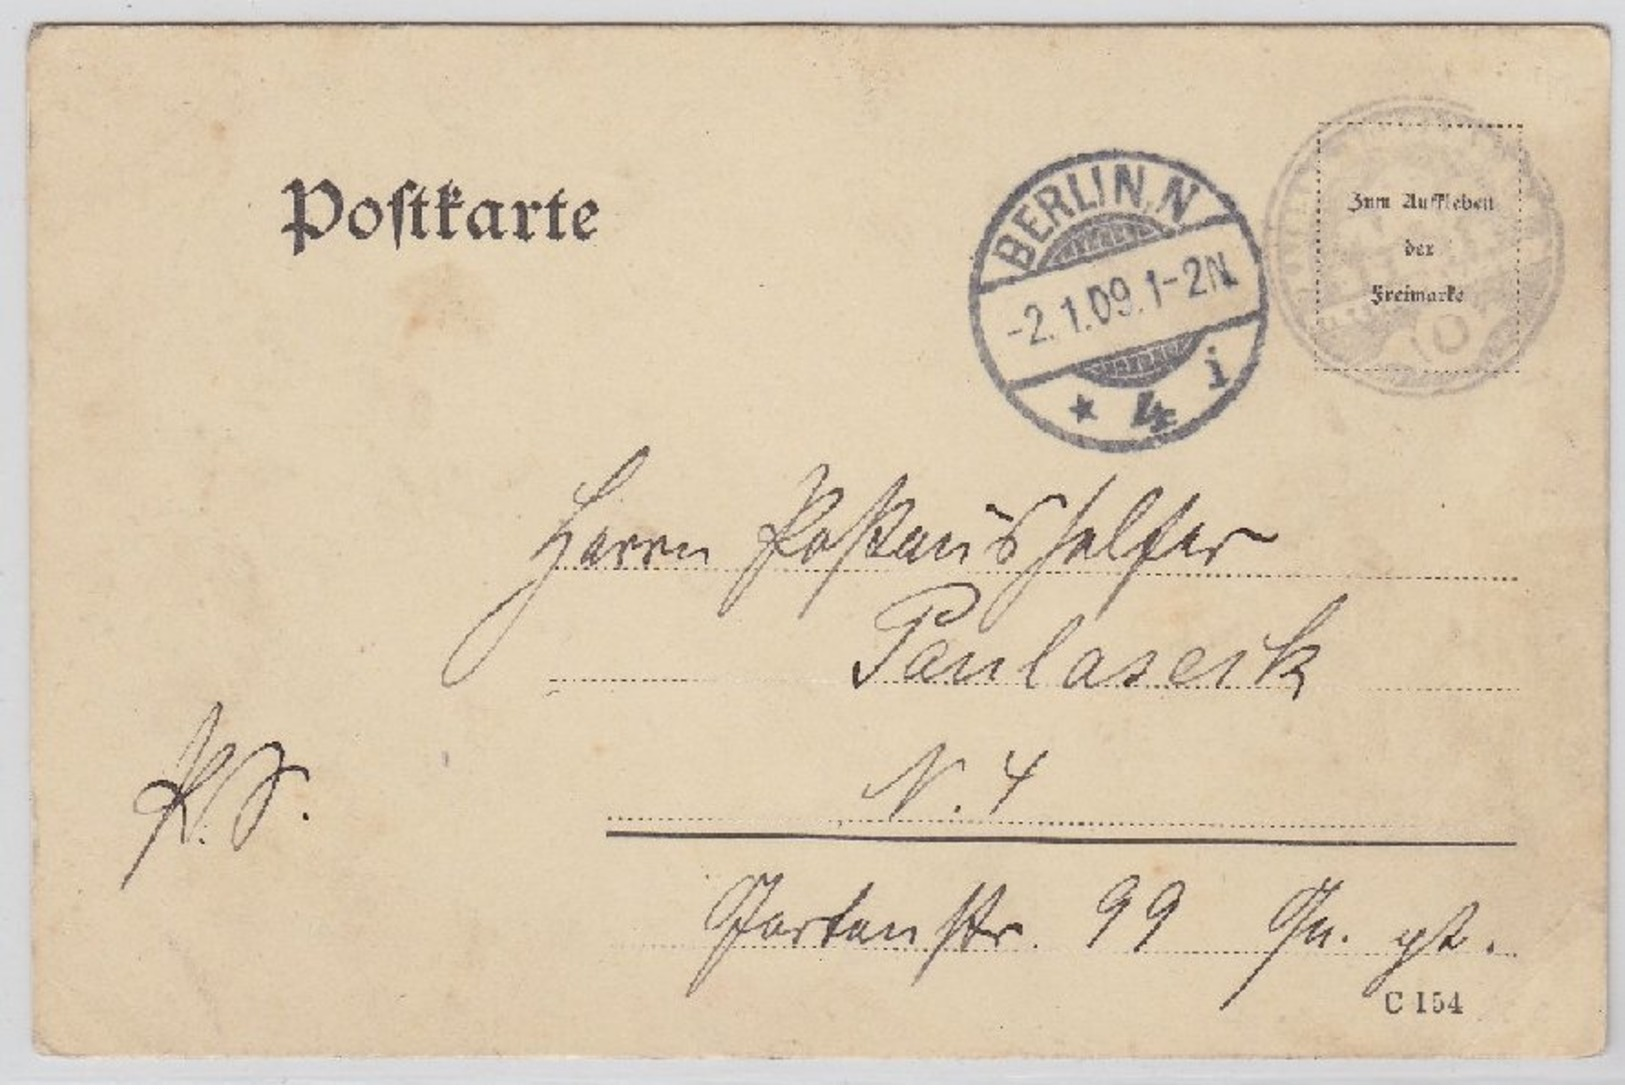 Postkarte
BERLIN. N
-2.1.09.1-2N.
* 4 i
Zum Aufkleben
der
Freimarke
Herrn Postaushelfer
Paulaseck
N. 4
P. S.
Gartenstr. 99
C 154